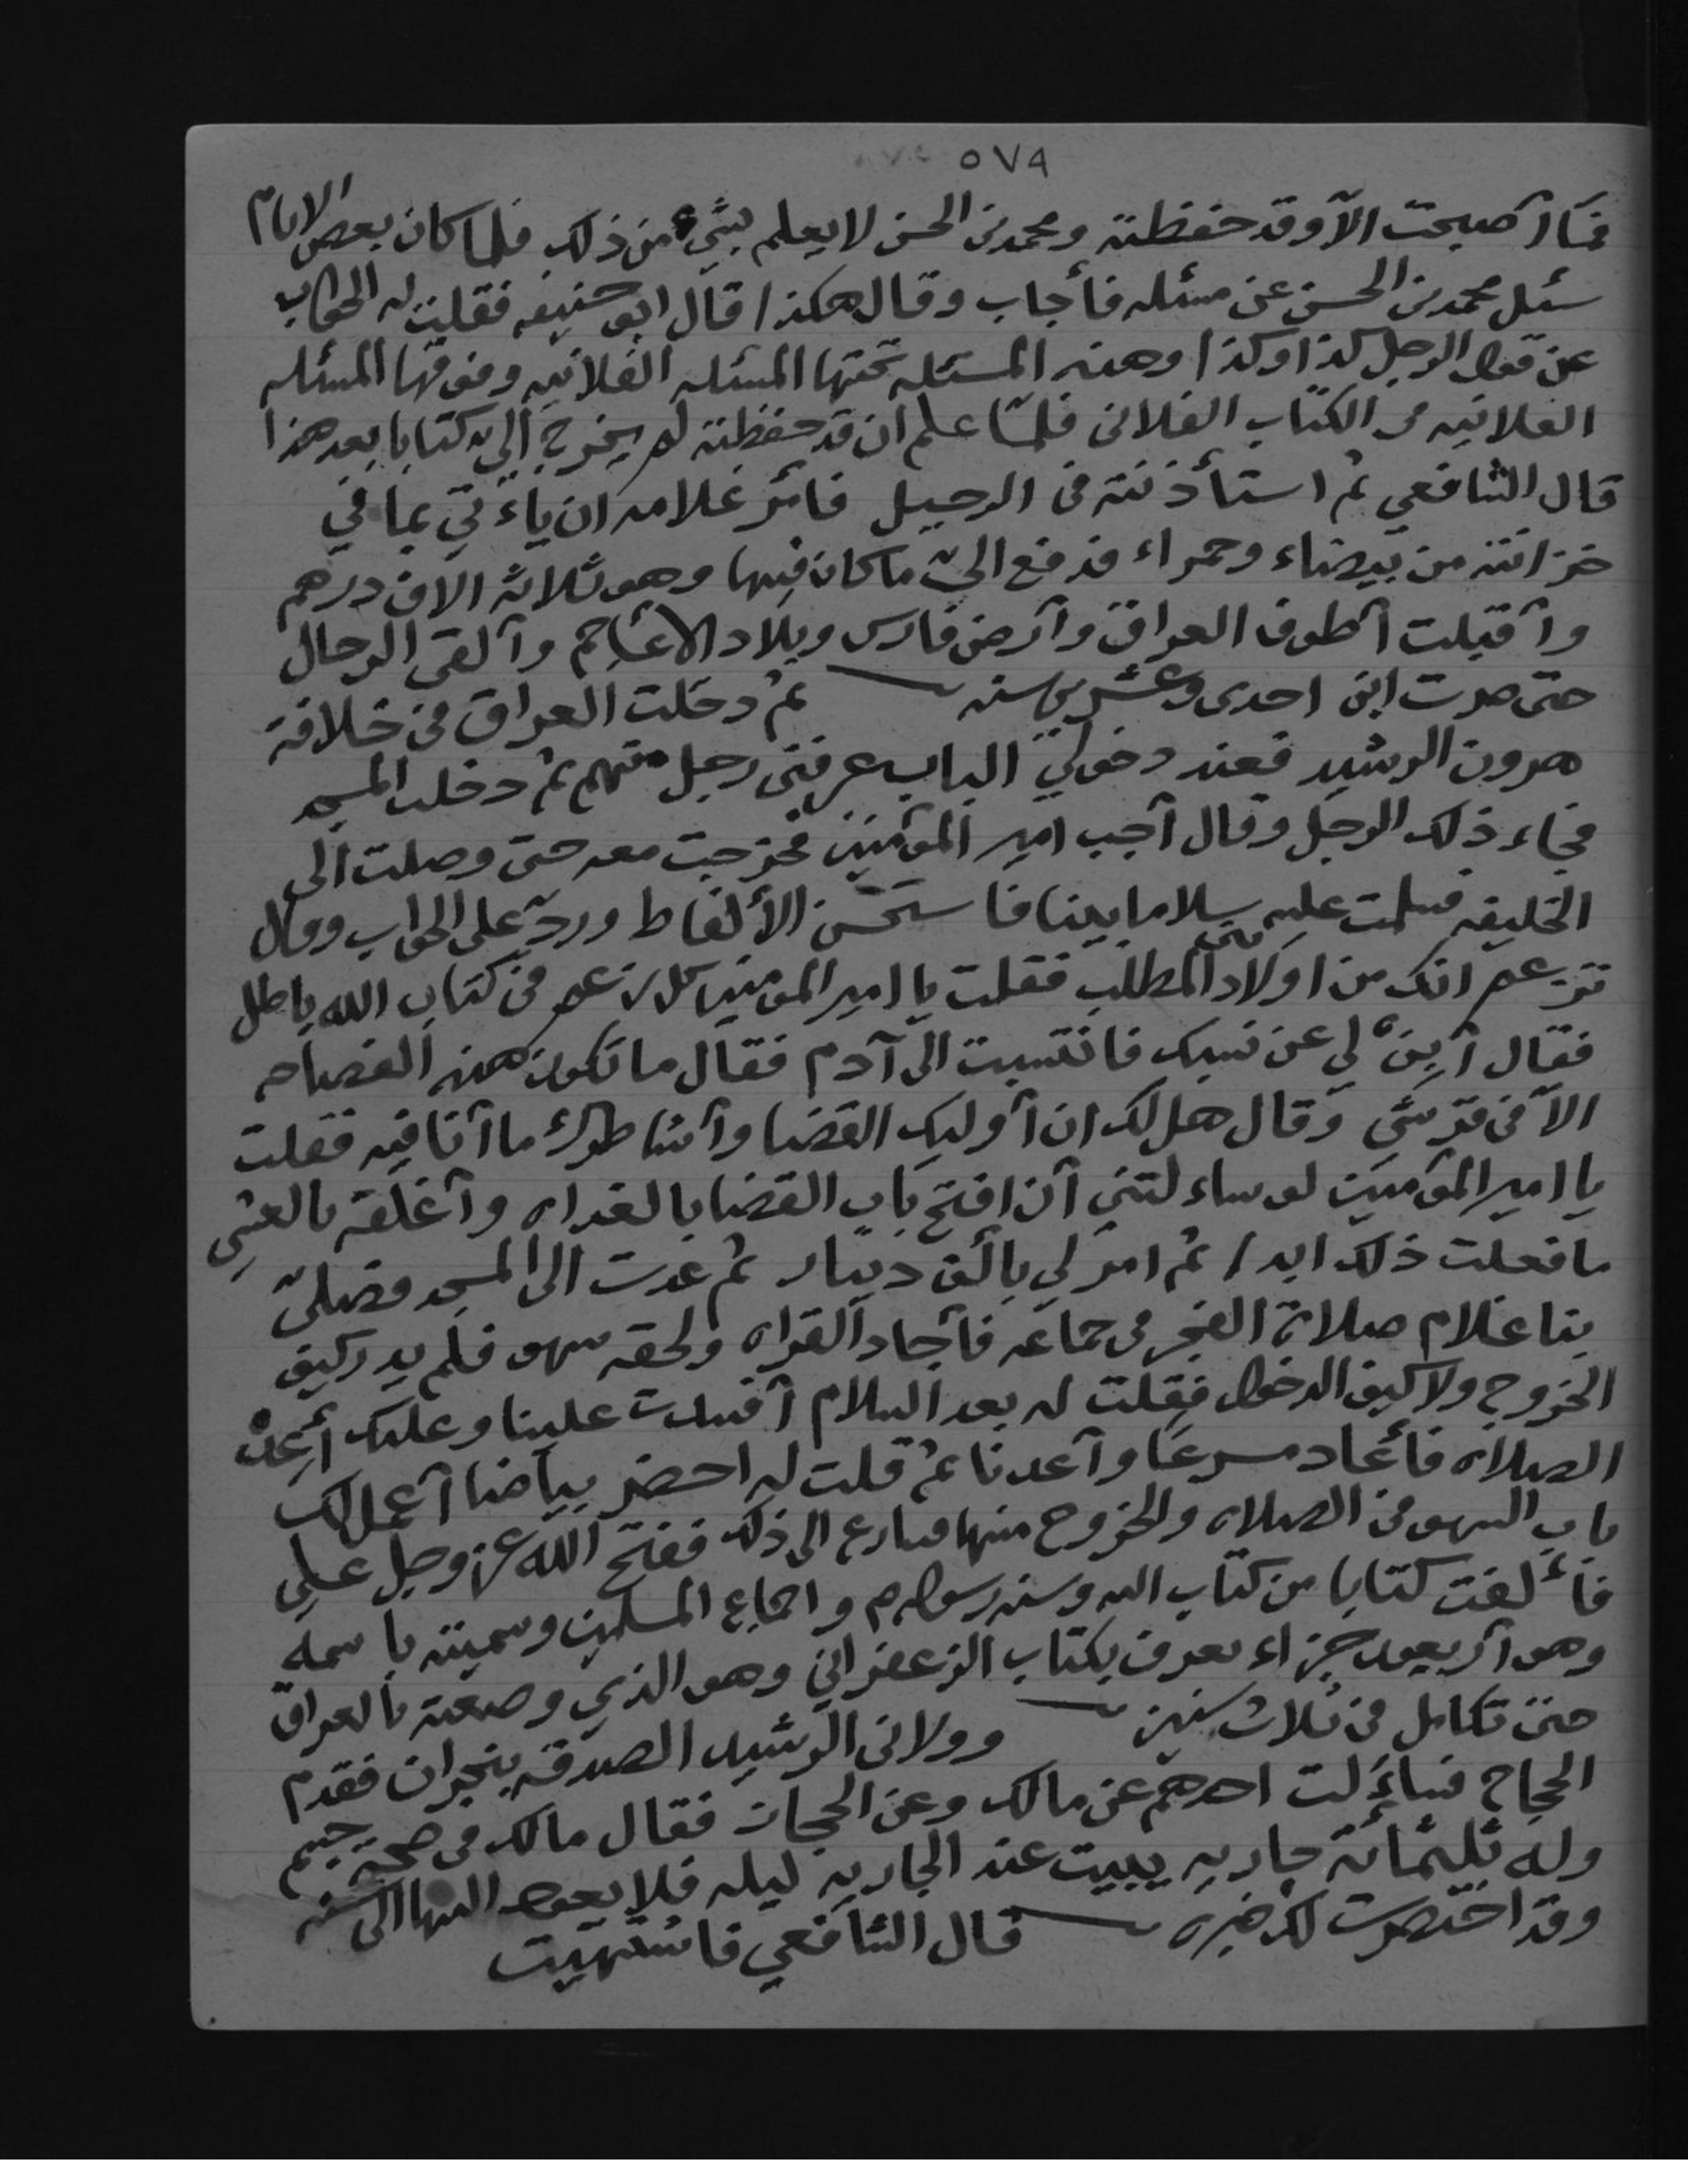 ٥٧٩
فما أصبحت الا وقد حفظته ومحمد بن الحسن لا يعلم بشيء من ذلك فلما كان بعض الايام
سئل محمد بن الحسن عن مسئله فأجاب وقال هكذا قال ابو حنيفه فقلت له الجواب
عن قول الرجل كذا وكذا وهذه المسئله تحتها المسئله الفلانيه وفوقها المسئله
الفلانيه من الكتاب الفلانى فلمّا علم ان قد حفظته لم يخرج اليّ كتابا بعد هذا
قال الشافعي ثم استأذنته فى الرحيل فأمر غلامه ان ياءتي بما في
خزانته من بيضاء وحمراء فدفع اليّ ما كان فيها وهو ثلاثة الاف درهم
وأقبلت أطوف العراق وأرض فارس وبلاد الاعاجم وألقى الرجال
حتى صرت ابن احدى وعشرين سنه ثم دخلت العراق فى خلافة
هرون الرشيد فعند دخولي الباب عرفنى رجل منهم ثم دخلت المسجد
فجاء ذلك الرجل وقال أجب امير المؤمنين فخرجت معه حتى وصلت الى
الخليفه فسلمت عليه سلاما بينا فاستحسن الألفاظ وردّ علي الجواب وقال
تزعم انك من اولاد بني المطلب فقلت يا امير المومنين كل زعم فى كتاب الله باطل
فقال أبن لي عن نسبك فانتسبت الى آدم فقال ما تكون هذه الفصاحه
الاّ فى قرشي وقال هل لك ان أوليك القضا وأشاطرك ما أنا فيه فقلت
يا امير المؤمنين لو ساءلتني أن افتح باب القضا بالغداه وأغلقه بالعشي
ما فعلت ذلك ابدا ثم امر لي بألف دينار ثم عدت الى المسجد فصلىّ
بنا غلام صلاة الفجر فى جماعه فأجاد القراه ولحقه سهو فلم يدر كيف
الخروج ولا كيف الدخول فقلت له بعد السلام أفسدت علينا وعليك أعد
الصلاه فأعاد مسرعا وأعدنا ثم قلت له احضر بياضا أعمل لك
باب السهو فى الصلاه والخروج منها فسارع الى ذلك ففتح الله عز وجل علي
فألفت كتابا من كتاب الله وسنه رسوله م واجماع المسلمين وسميته باسمه
وهو أربعون جزاء يعرف بكتاب الزعفراني وهو الذي وضعته بالعراق
حتى تكامل فى ثلاث سنين وولانى الرشيد الصدقه بنجران فقدم
الحجاج فساءلت احدهم عن مالك وعن الحجاز فقال مالك فى صحة جسم
وله ثلثمائة جاريه يبيت عند الجاريه ليله فلا يعود اليها الى سنه
وقد اختصرت لك خبره قال الشافعي فاشتهيت